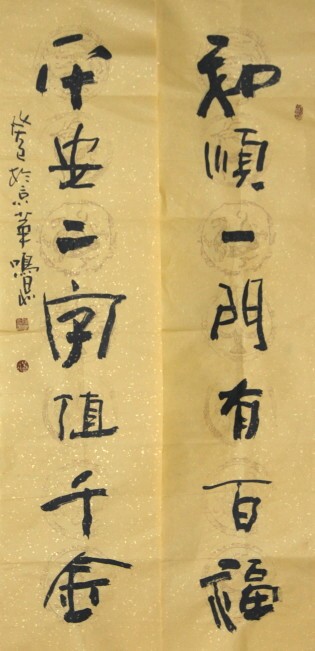 和順一門有百福
平安二字值千金
癸巳於京華鳴